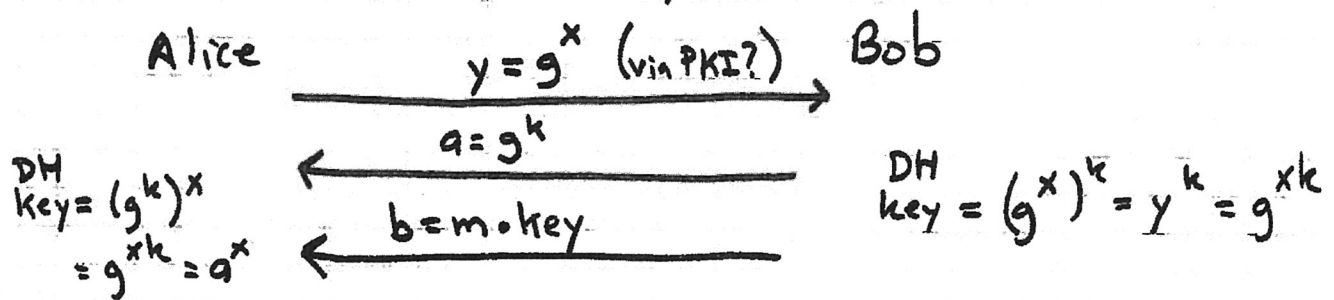 Alice
y = g^x (via PKI?)
Bob
a = g^k
DH
key = (g^k)^x
= g^xk = a^x
b = m · key
DH
key = (g^x)^k = y^k = g^xk